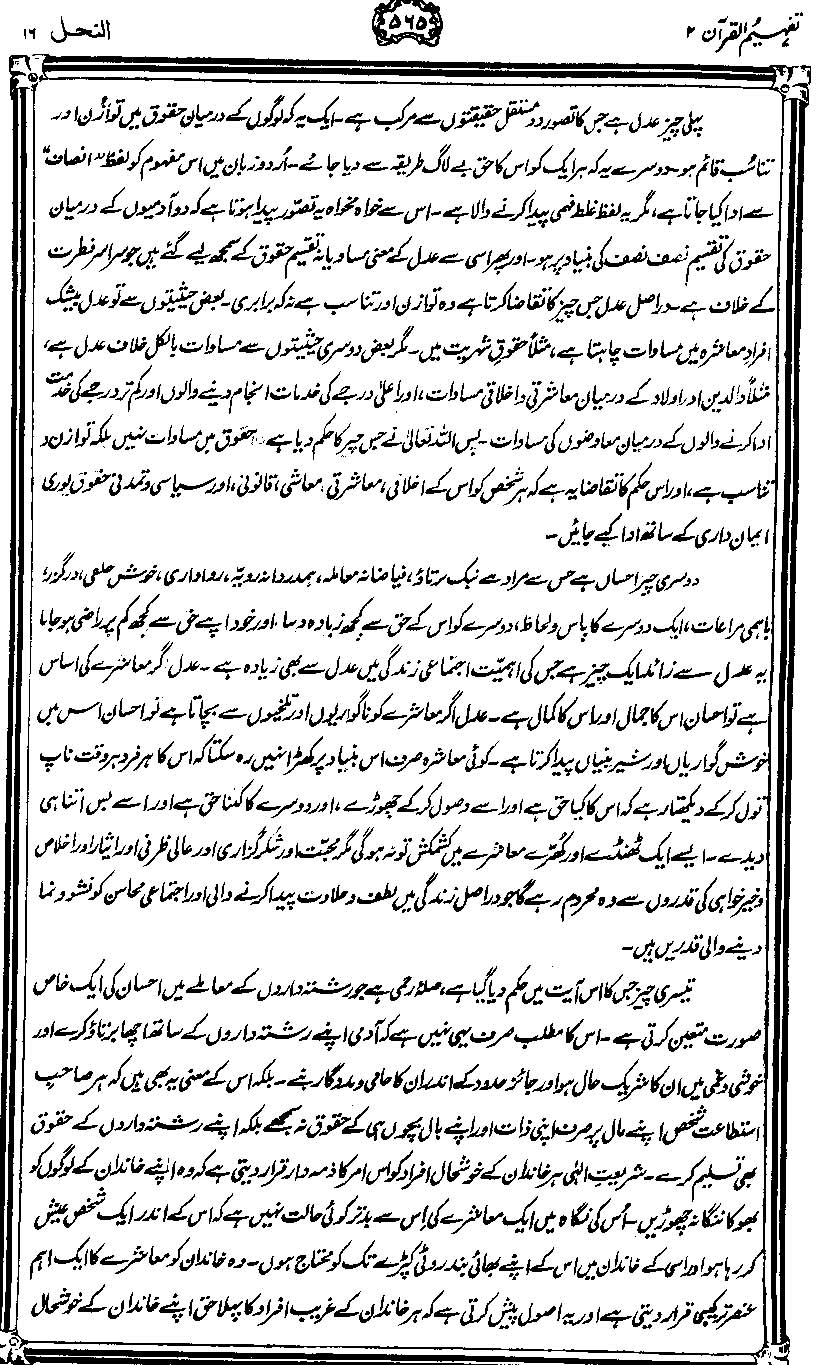 تفہیم القرآن ۲
۵۶۵
النحل ۱۶
پہلی چیز عدل ہے جس کا تصور دو مستقل حقیقتوں سے مرکب ہے۔ ایک یہ کہ لوگوں کے درمیان حقوق میں توازن اور
تناسب قائم ہو۔ دوسرے یہ کہ ہر ایک کو اس کا حق بے لاگ طریقہ سے دیا جائے۔ اُردو زبان میں اس مفہوم کو لفظ ”انصاف“
سے ادا کیا جاتا ہے، مگر یہ لفظ غلط فہمی پیدا کرنے والا ہے۔ اس سے خواہ مخواہ یہ تصور پیدا ہوتا ہے کہ دو آدمیوں کے درمیان
حقوق کی تقسیم نصف نصف کی بنیاد پر ہو۔ اور پھر اسی سے عدل کے معنی مساویانہ تقسیم حقوق کے سمجھ لیے گئے ہیں جو سراسر فطرت
کے خلاف ہے۔ دراصل عدل جس چیز کا تقاضا کرتا ہے وہ توازن اور تناسب ہے نہ کہ برابری۔ بعض حیثیتوں سے تو عدل بیشک
افراد معاشرہ میں مساوات چاہتا ہے، مثلاً حقوقِ شہریت میں۔ مگر بعض دوسری حیثیتوں سے مساوات بالکل خلاف عدل ہے،
مثلاً والدین اور اولاد کے درمیان معاشرتی و اخلاقی مساوات، اور اعلیٰ درجے کی خدمات انجام دینے والوں اور کم تر درجے کی خدمت
ادا کرنے والوں کے درمیان معاوضوں کی مساوات۔ پس اللہ تعالیٰ نے جس چیز کا حکم دیا ہے وہ حقوق میں مساوات نہیں بلکہ توازن و
تناسب ہے، اور اس حکم کا تقاضا یہ ہے کہ ہر شخص کو اس کے اخلاقی، معاشرتی، معاشی، قانونی، اور سیاسی و تمدنی حقوق پوری
ایمان داری کے ساتھ ادا کیے جائیں۔
دوسری چیز احسان ہے جس سے مراد ہے نیک برتاؤ، فیاضانہ معاملہ، ہمدردانہ رویّہ، رواداری، خوش خلقی، درگزر،
باہمی مراعات، ایک دوسرے کا پاس و لحاظ، دوسرے کو اس کے حق سے کچھ زیادہ دینا، اور خود اپنے حق سے کچھ کم پر راضی ہو جانا
یہ عدل سے زائد ایک چیز ہے جس کی اہمیت اجتماعی زندگی میں عدل سے بھی زیادہ ہے۔ عدل اگر معاشرے کی اساس
ہے تو احسان اس کا جمال اور اس کا کمال ہے۔ عدل اگر معاشرے کو ناگواریوں اور تلخیوں سے بچاتا ہے تو احسان اس میں
خوش گواریاں اور شیرینیاں پیدا کرتا ہے۔ کوئی معاشرہ صرف اس بنیاد پر کھڑا نہیں رہ سکتا کہ اس کا ہر فرد ہر وقت ناپ
تول کر کے دیکھتا رہے کہ اس کا کیا حق ہے اور اسے وصول کر کے چھوڑے، اور دوسرے کا کتنا حق ہے اور اسے بس اتنا ہی
دیدے۔ ایسے ایک ٹھنڈے اور کھُرّے معاشرے میں کشمکش تو نہ ہوگی مگر محبّت اور شکر گزاری اور عالی ظرفی اور ایثار اور اخلاص
و خیر خواہی کی قدروں سے وہ محروم رہے گا جو دراصل زندگی میں لطف و حلاوت پیدا کرنے والی اور اجتماعی محاسن کو نشوونما
دینے والی قدریں ہیں۔
تیسری چیز جس کا اس آیت میں حکم دیا گیا ہے، صلۂ رحمی ہے جو رشتہ داروں کے معاملے میں احسان کی ایک خاص
صورت متعین کرتی ہے۔ اس کا مطلب صرف یہی نہیں ہے کہ آدمی اپنے رشتہ داروں کے ساتھ اچھا برتاؤ کرے اور
خوشی و غمی میں ان کا شریک حال ہو اور جائز حدود کے اندر ان کا حامی و مددگار بنے۔ بلکہ اس کے معنی یہ بھی ہیں کہ ہر صاحبِ
استطاعت شخص اپنے مال پر صرف اپنی ذات اور اپنے بال بچوں ہی کے حقوق نہ سمجھے بلکہ اپنے رشتہ داروں کے حقوق
بھی تسلیم کرے۔ شریعتِ الٰہی ہر خاندان کے خوشحال افراد کو اس امر کا ذمہ دار قرار دیتی ہے کہ وہ اپنے خاندان کے لوگوں کو
بھوکا ننگا نہ چھوڑیں۔ اُس کی نگاہ میں ایک معاشرے کی اِس سے بدتر کوئی حالت نہیں ہے کہ اس کے اندر ایک شخص عیش
کر رہا ہو اور اسی کے خاندان میں اس کے اپنے بھائی بند روٹی کپڑے تک کو محتاج ہوں۔ وہ خاندان کو معاشرے کا ایک اہم
عنصر ترکیبی قرار دیتی ہے اور یہ اصول پیش کرتی ہے کہ ہر خاندان کے غریب افراد کا پہلا حق اپنے خاندان کے خوشحال